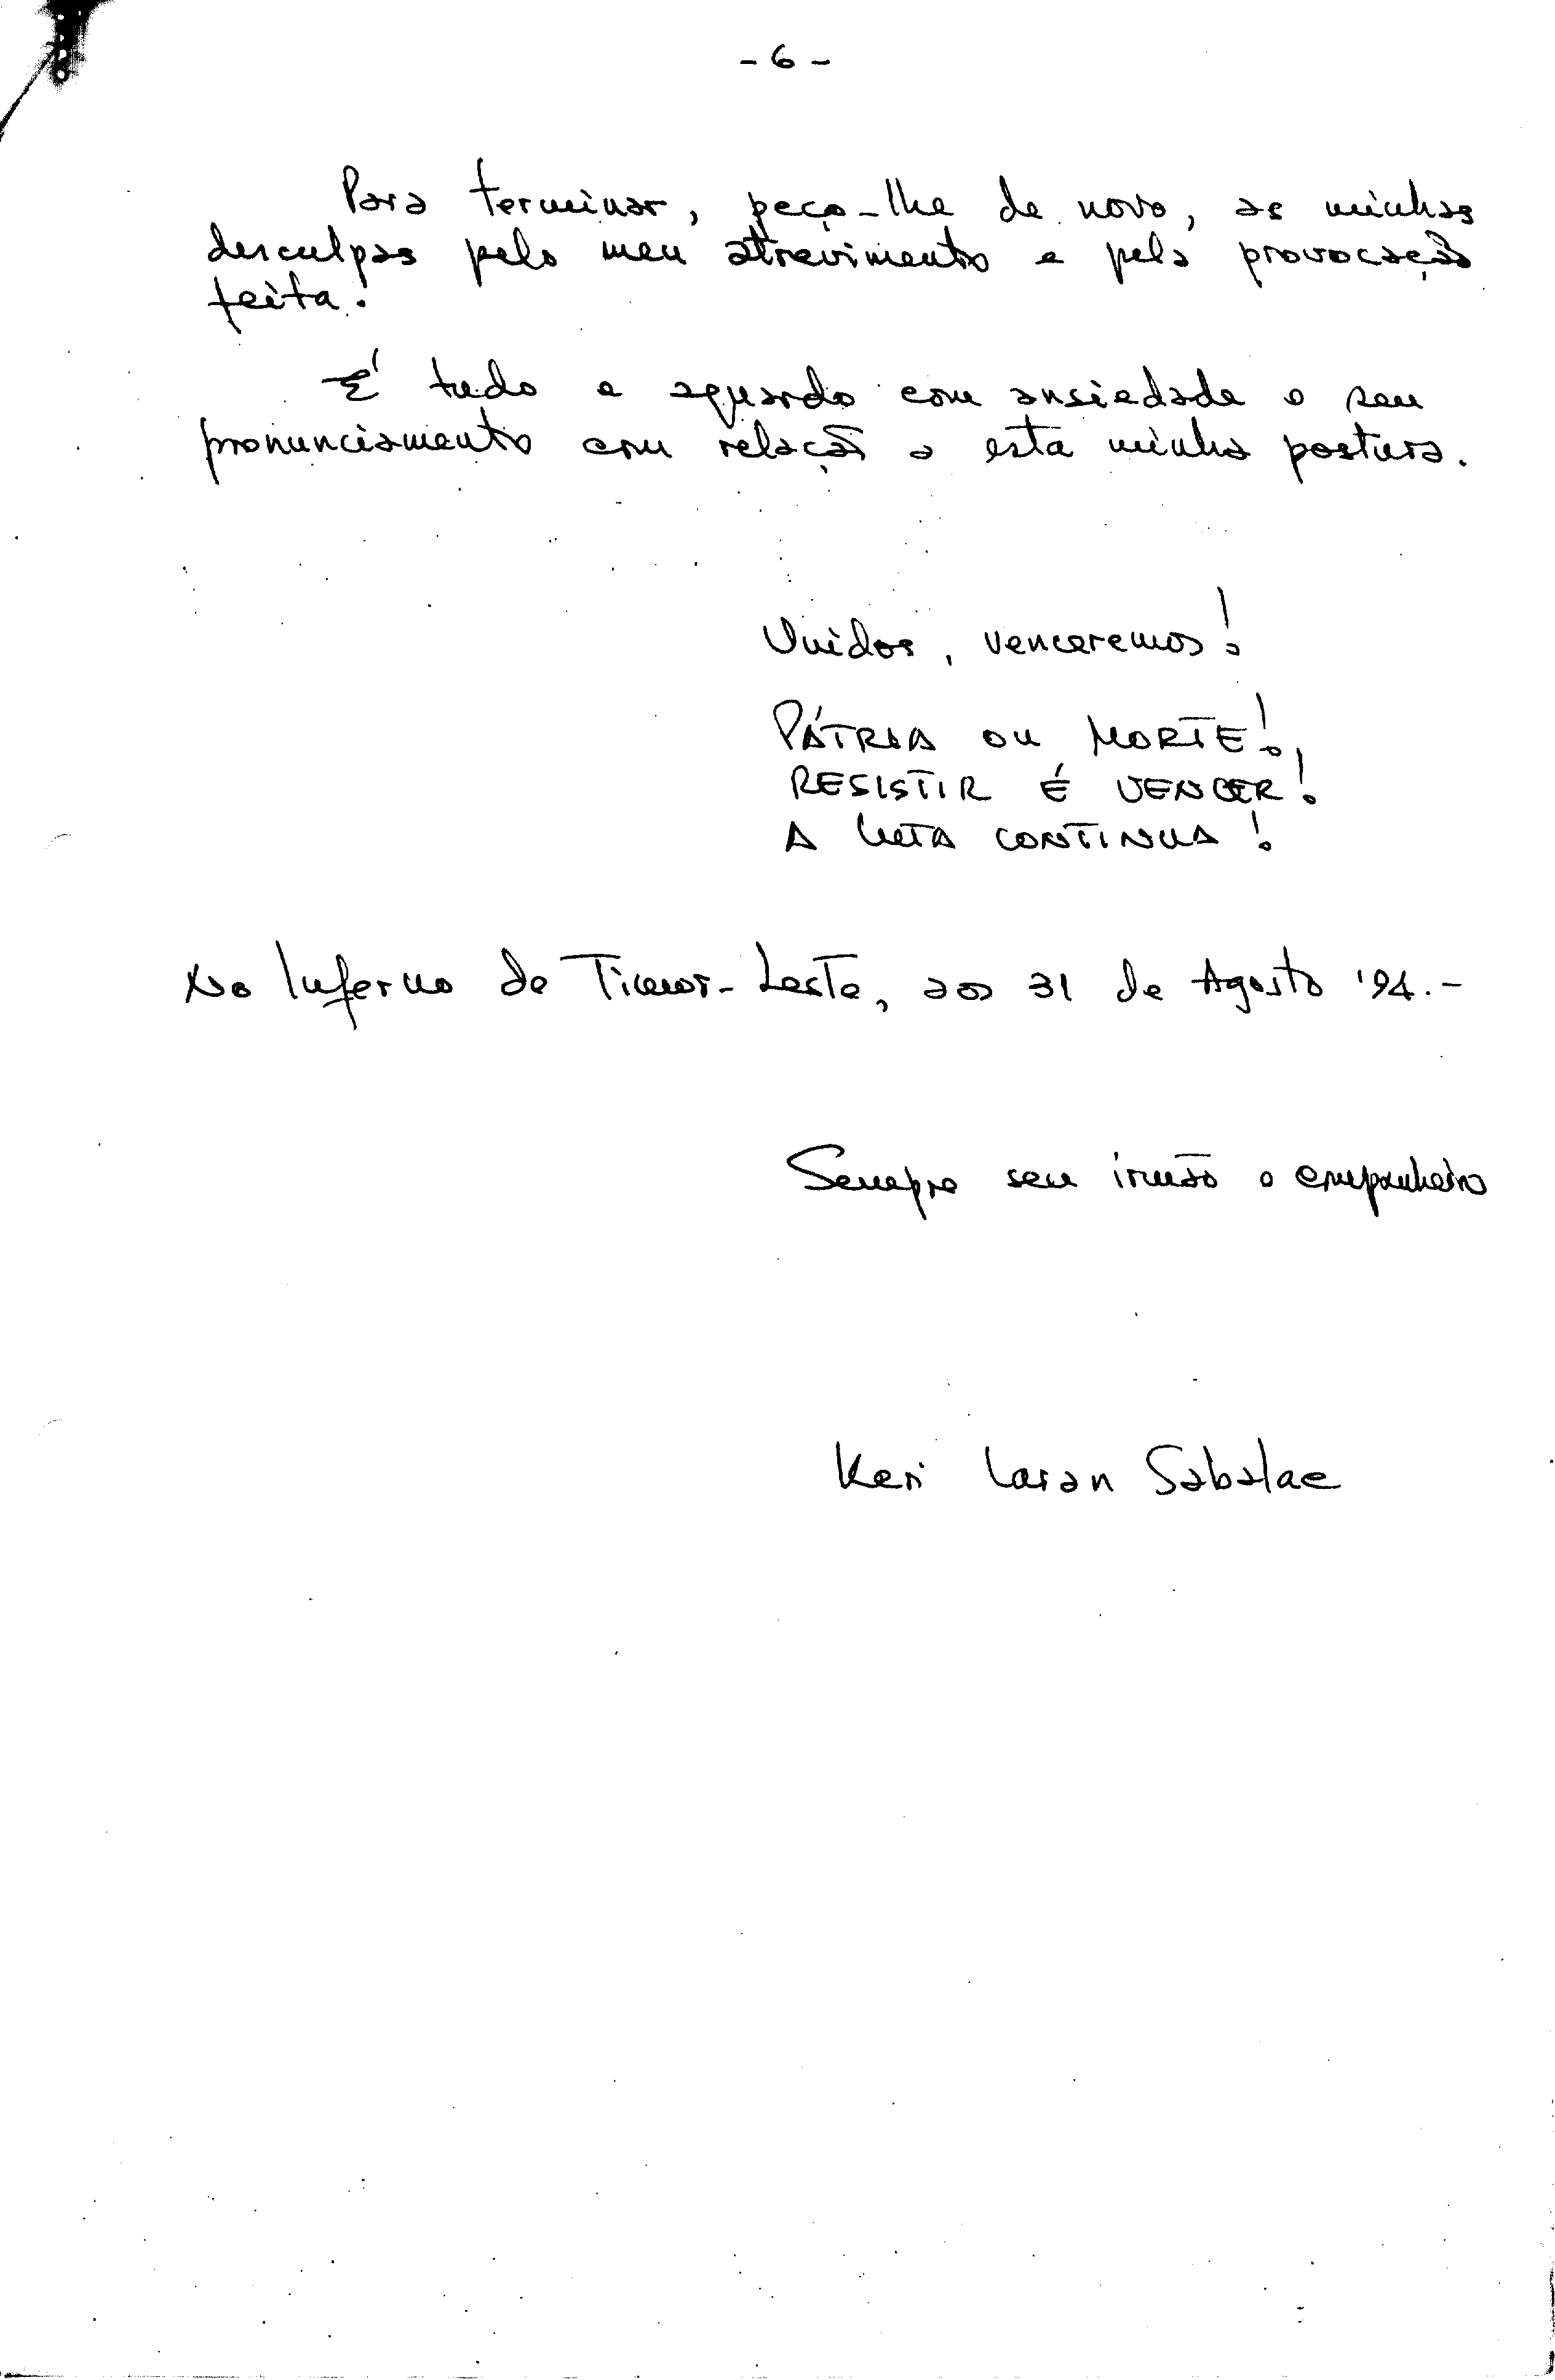 - 6 -
Para terminar, peço-lhe de novo, as minhas
desculpas pelo meu atrevimento e pela provocação
feita.
É tudo e aguardo com ansiedade o seu
pronunciamento com relação a esta minha postura.
Unidos, venceremos!
PÁTRIA OU MORTE!
RESISTIR É VENCER!
A LUTA CONTINUA!
No Inferno de Timor-Leste, aos 31 de Agosto '94.-
Sempre seu irmão e companheiro
Keri Laran Sabalae